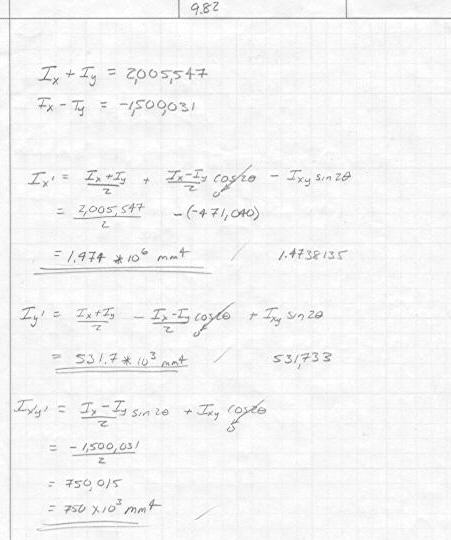 9.82
Ix + Iy = 2,005,547
Ix - Iy = -1,500,031
Ix' = Ix+Iy/2 + Ix-Iy/2 cos2θ 0 - Ixy sin 2θ
= 2,005,547/2 -(-471,040)
= 1.474 * 10^6 mm^4 / 1.4738135
Iy' = Ix+Iy/2 - Ix-Iy/2 cos2θ 0 + Ixy sin 2θ
= 531.7 * 10^3 mm^4 / 531,733
Ix'y' = Ix-Iy/2 sin 2θ + Ixy cos2θ 0
= -1,500,031/2
= 750,015
= 750 × 10^3 mm^4 /